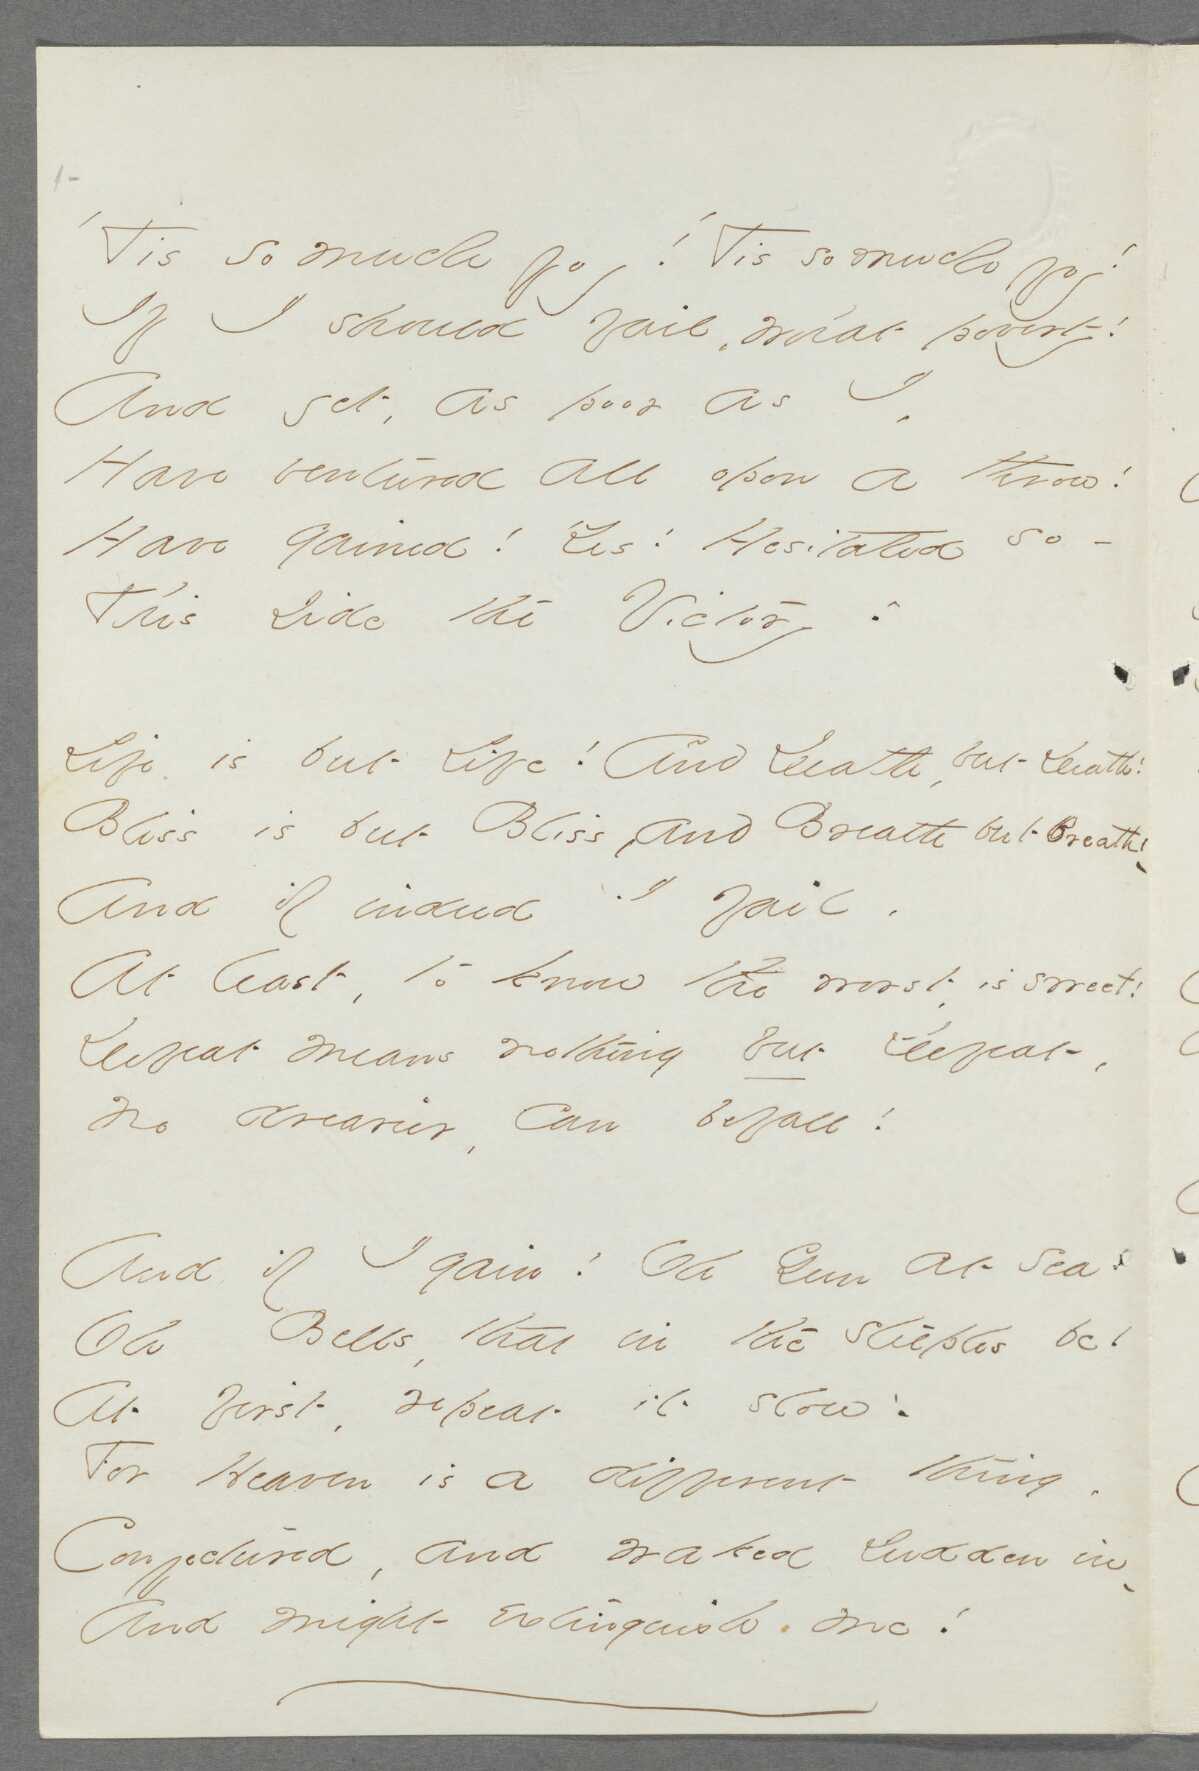 1-
'Tis so much joy! 'Tis so much joy!
If I should fail, what poverty!
And yet, as poor as I,
Have ventured all upon a throw!
Have gained! Yes! Hesitated so -
This side the Victory!
Life is but Life! And Death, but Death!
Bliss is but Bliss, and Breath but Breath!
And if indeed I fail,
At least, to know the worst, is sweet!
Defeat means nothing but Defeat,
No drearier, can befall!
And if I gain! Oh Gun at Sea!
Oh Bells, that in the steeples be!
At first, repeat it slow!
For Heaven is a different thing,
Conjectured, and waked sudden in,
And might extinguish me!